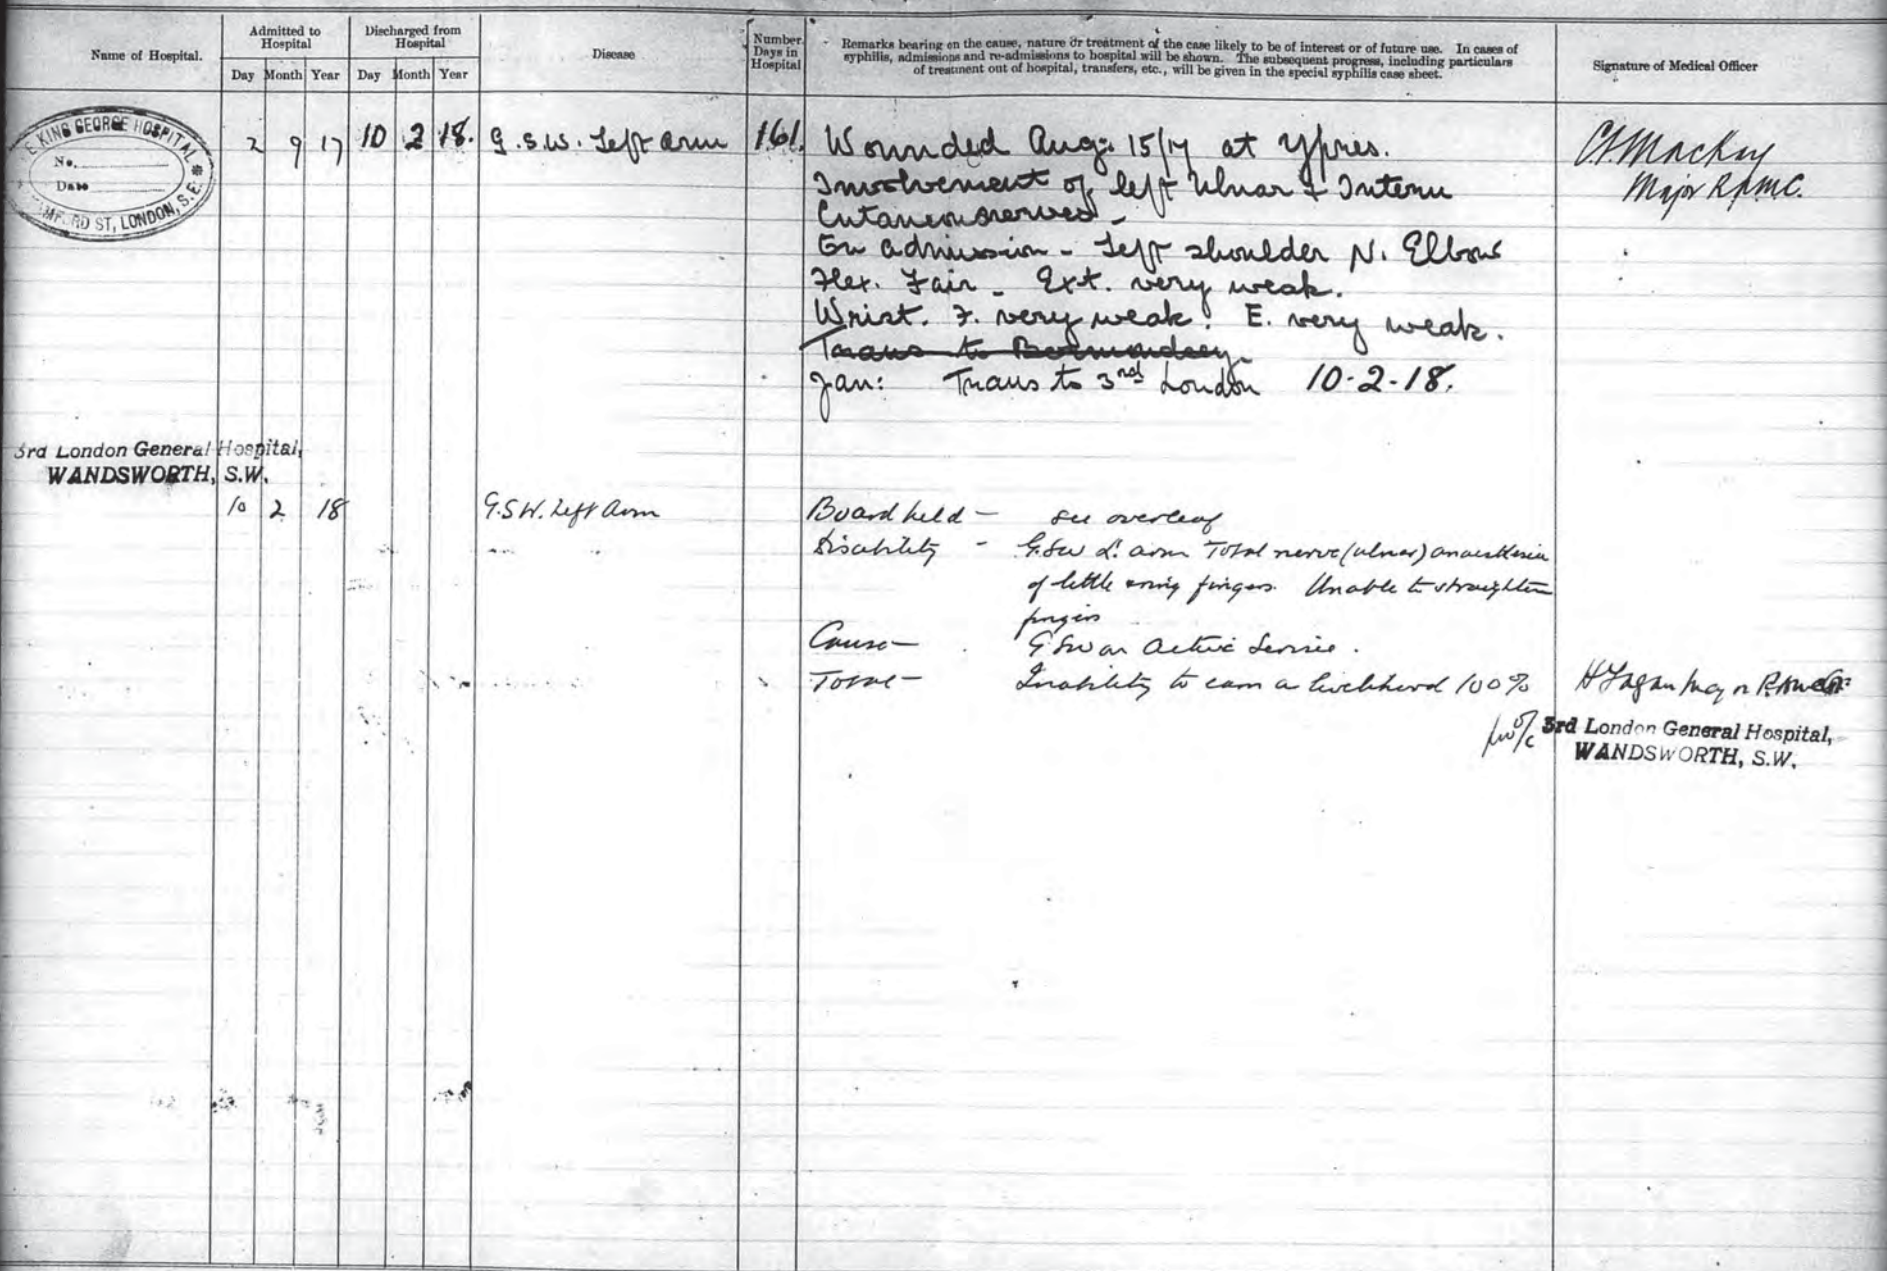 Name of Hospital.
Admitted to
Hospital
Day Month Year
Discharged from
Hospital
Day Month Year
Disease
Number
Days in
Hospital
Remarks bearing on the cause, nature or treatment of the case likely to be of interest or of future use. In cases of
syphilis, admissions and re-admissions to hospital will be shown. The subsequent progress, including particulars
of treatment out of hospital, transfers, etc., will be given in the special syphilis case sheet.
Signature of Medical Officer
KING GEORGE HOSPITAL
No.
Date
ST, LONDON, S.E.
2 9 17 10 2 18. G.S.W. Left arm 161.
Wounded Aug: 15/17 at Ypres.
Involvement of left Ulnar & Intern
Cutaneous nerves -
On admission - Left shoulder N. Elbow
Flex. Fair - Ext. very weak.
Wrist. F. very weak. E. very weak.
Trans to Bermondsey
Jan: Trans to 3rd London 10-2-18.
Mackay
Major RAMC.
3rd London General Hospital,
WANDSWORTH, S.W.
10 2 18 G.S.W. Left Arm
Board held - see overleaf
Disability - G.S.W L. arm Total nerve (ulnar) anaesthesia
of little & ring fingers. Unable to straighten
fingers
Cause - GSW on Active Service.
Total - Inability to earn a livelihood 100%
3rd London General Hospital,
WANDSWORTH, S.W.